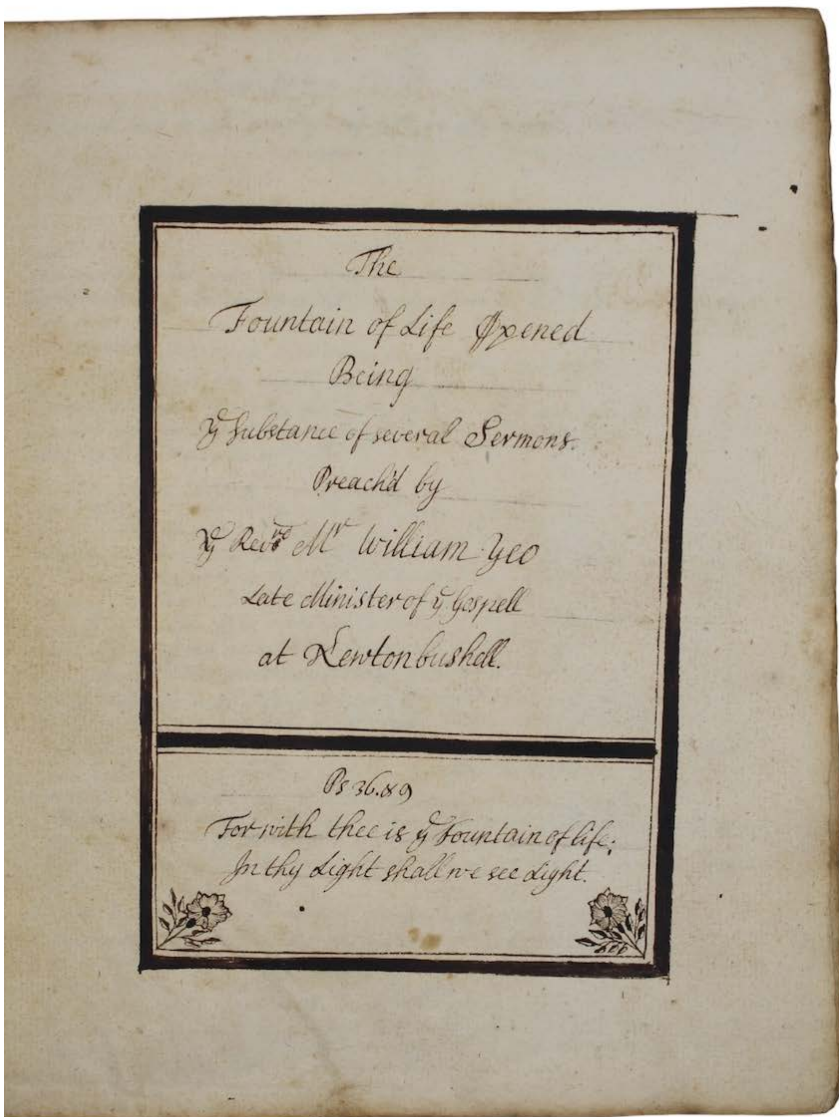 The
Fountain of Life Opened
Being
yͤ Substance of several Sermons.
Preach'd by
yͤ Revᵈ Mʳ William Yeo
Late Minister of yͤ Gospell
at Newtonbushell.
Ps 36.89
For with thee is yͤ Fountain of life;
In thy Light shall we see Light.